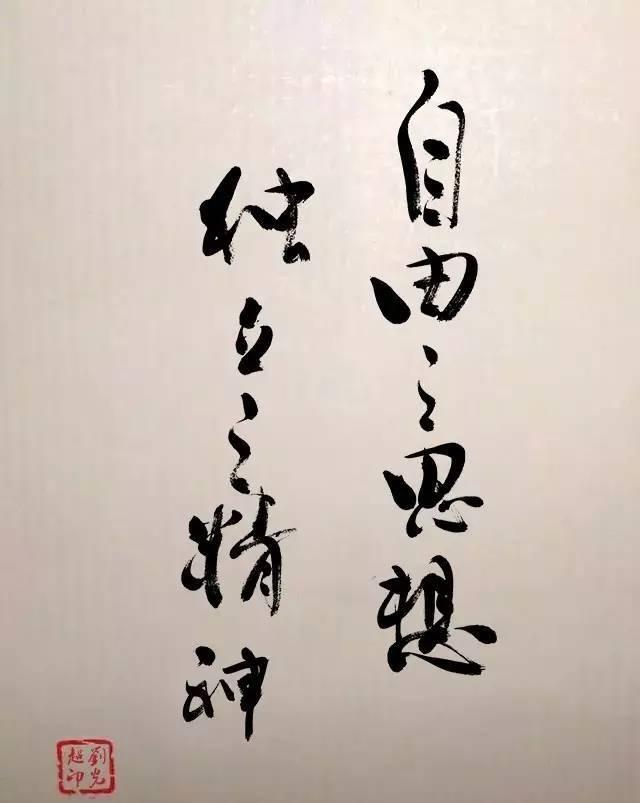 自由之思想
独立之精神
劉光超印